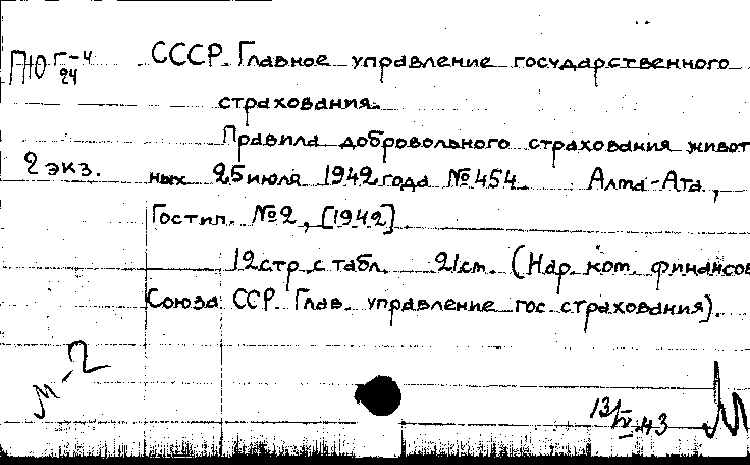 ПЮ Г-4 СССР. Главное управление государственного
24
страхования.
Правила добровольного страхования живот
2 экз. ных 25 июля 1942 года №454. Алма-Ата,
Гостип. №2, [1942].
12 стр с табл. 21 см. (Нар. ком. финансов
Союза ССР. Глав. управление гос. страхования).
М-2
13/IV 43